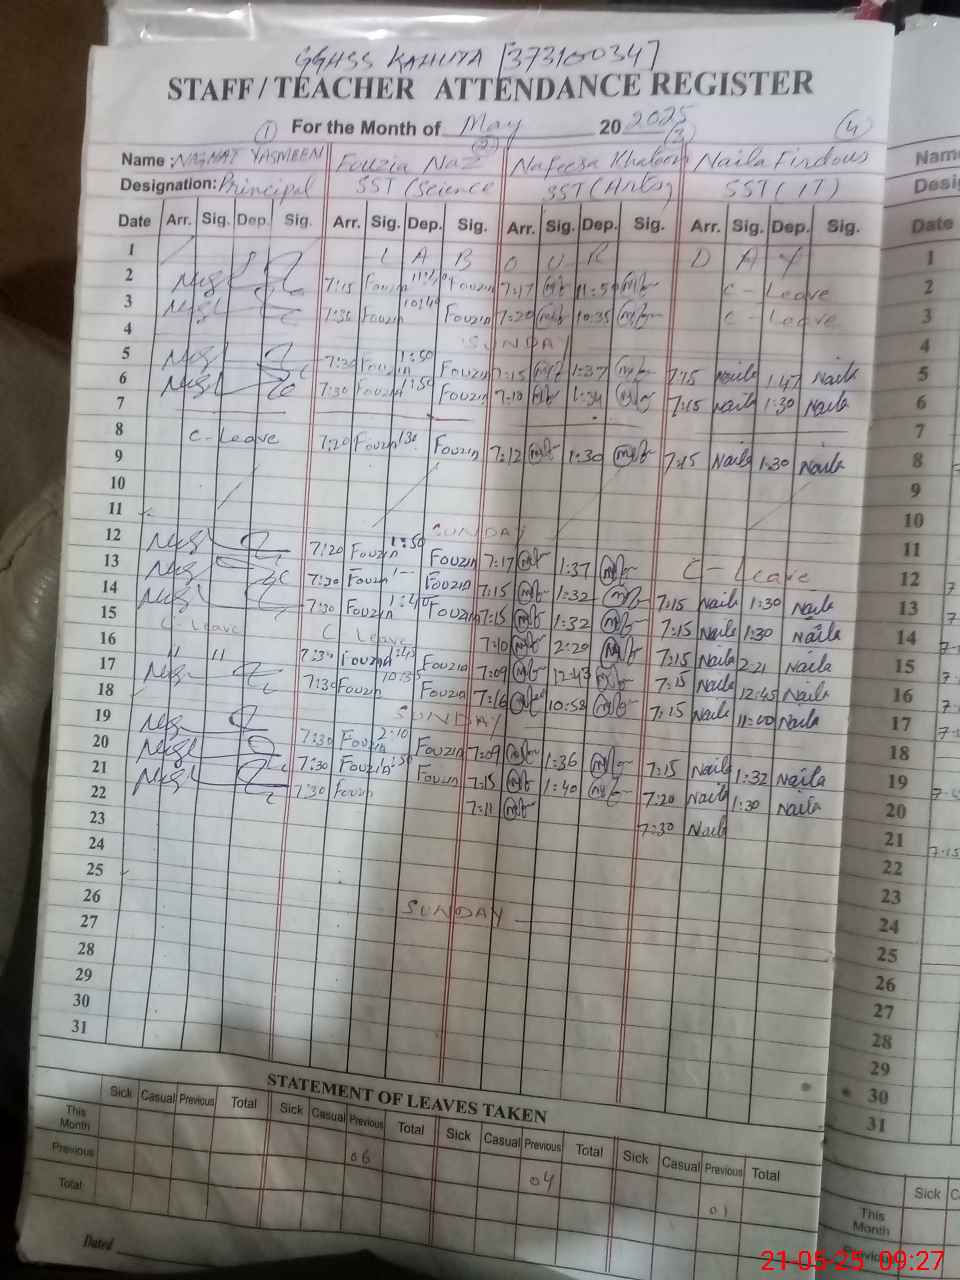 GGHSS KAHUTA [37310034]
STAFF / TEACHER ATTENDANCE REGISTER
① For the Month of May 20 2025 (4)
(2) (3)
Name : NIGHAT YASMEEN Fouzia Naz Nafeesa Khatoon Naila Firdous
Designation: Principal SST (Science SST (Arts) SST (IT)
Date Arr. Sig. Dep. Sig. Arr. Sig. Dep. Sig. Arr. Sig. Dep. Sig. Arr. Sig. Dep. Sig.
1 L A B O U R D A Y
2 7:15 Fouzin Fouzin 7:17 C - Leave
3 7:30 Fouzin Fouzin 7:20 10:35 C - Leave
4 SUNDAY
5 7:30 Fouzin 1:50 Fouzin 7:15 1:37 7:15 Naila 1:47 Naila
6 7:30 Fouzin 1:50 Fouzin 7:10 1:34 7:15 Naila 1:30 Naila
7
8 C - Leave 7:20 Fouzin Fouzin 7:12 1:30 7:15 Naila 1:30 Naila
9
10
11 SUNDAY
12 7:20 Fouzin 1:50 Fouzin 7:17 1:37 C - Leave
13 7:30 Fouzin Fouzin 7:15 1:32 7:15 Naila 1:30 Naila
14 7:30 Fouzin 1:40 Fouzin 7:15 1:32 7:15 Naila 1:30 Naila
15 C - Leave C Leave 7:10 2:20 7:15 Naila 2:21 Naila
16 " " 7:30 Fouzin Fouzin 7:09 12:43 7:15 Naila 12:45 Naila
17 7:30 Fouzin 10:35 Fouzin 7:16 10:58 7:15 Naila 11:00 Naila
18 SUNDAY
19 7:30 Fouzin 2:10 Fouzin 7:09 1:36 7:15 Naila 1:32 Naila
20 7:30 Fouzin Fouzin 7:15 1:40 7:20 Naila 1:30 Naila
21 7:30 Fouzin 7:11 7:30 Naila
22
23
24
25 SUNDAY
26
27
28
29
30
31
STATEMENT OF LEAVES TAKEN
Sick Casual Previous Total Sick Casual Previous Total Sick Casual Previous Total Sick Casual Previous Total
This Month
Previous 06 04 01
Total
Dated
Name
Date
1
2
3
4
5
6
7
8
9
10
11
12
13
14
15
16
17
18
19
20
21 7:15
22
23
24
25
26
27
28
29
30
31
Sick
This Month
Previous
21-05-25 09:27